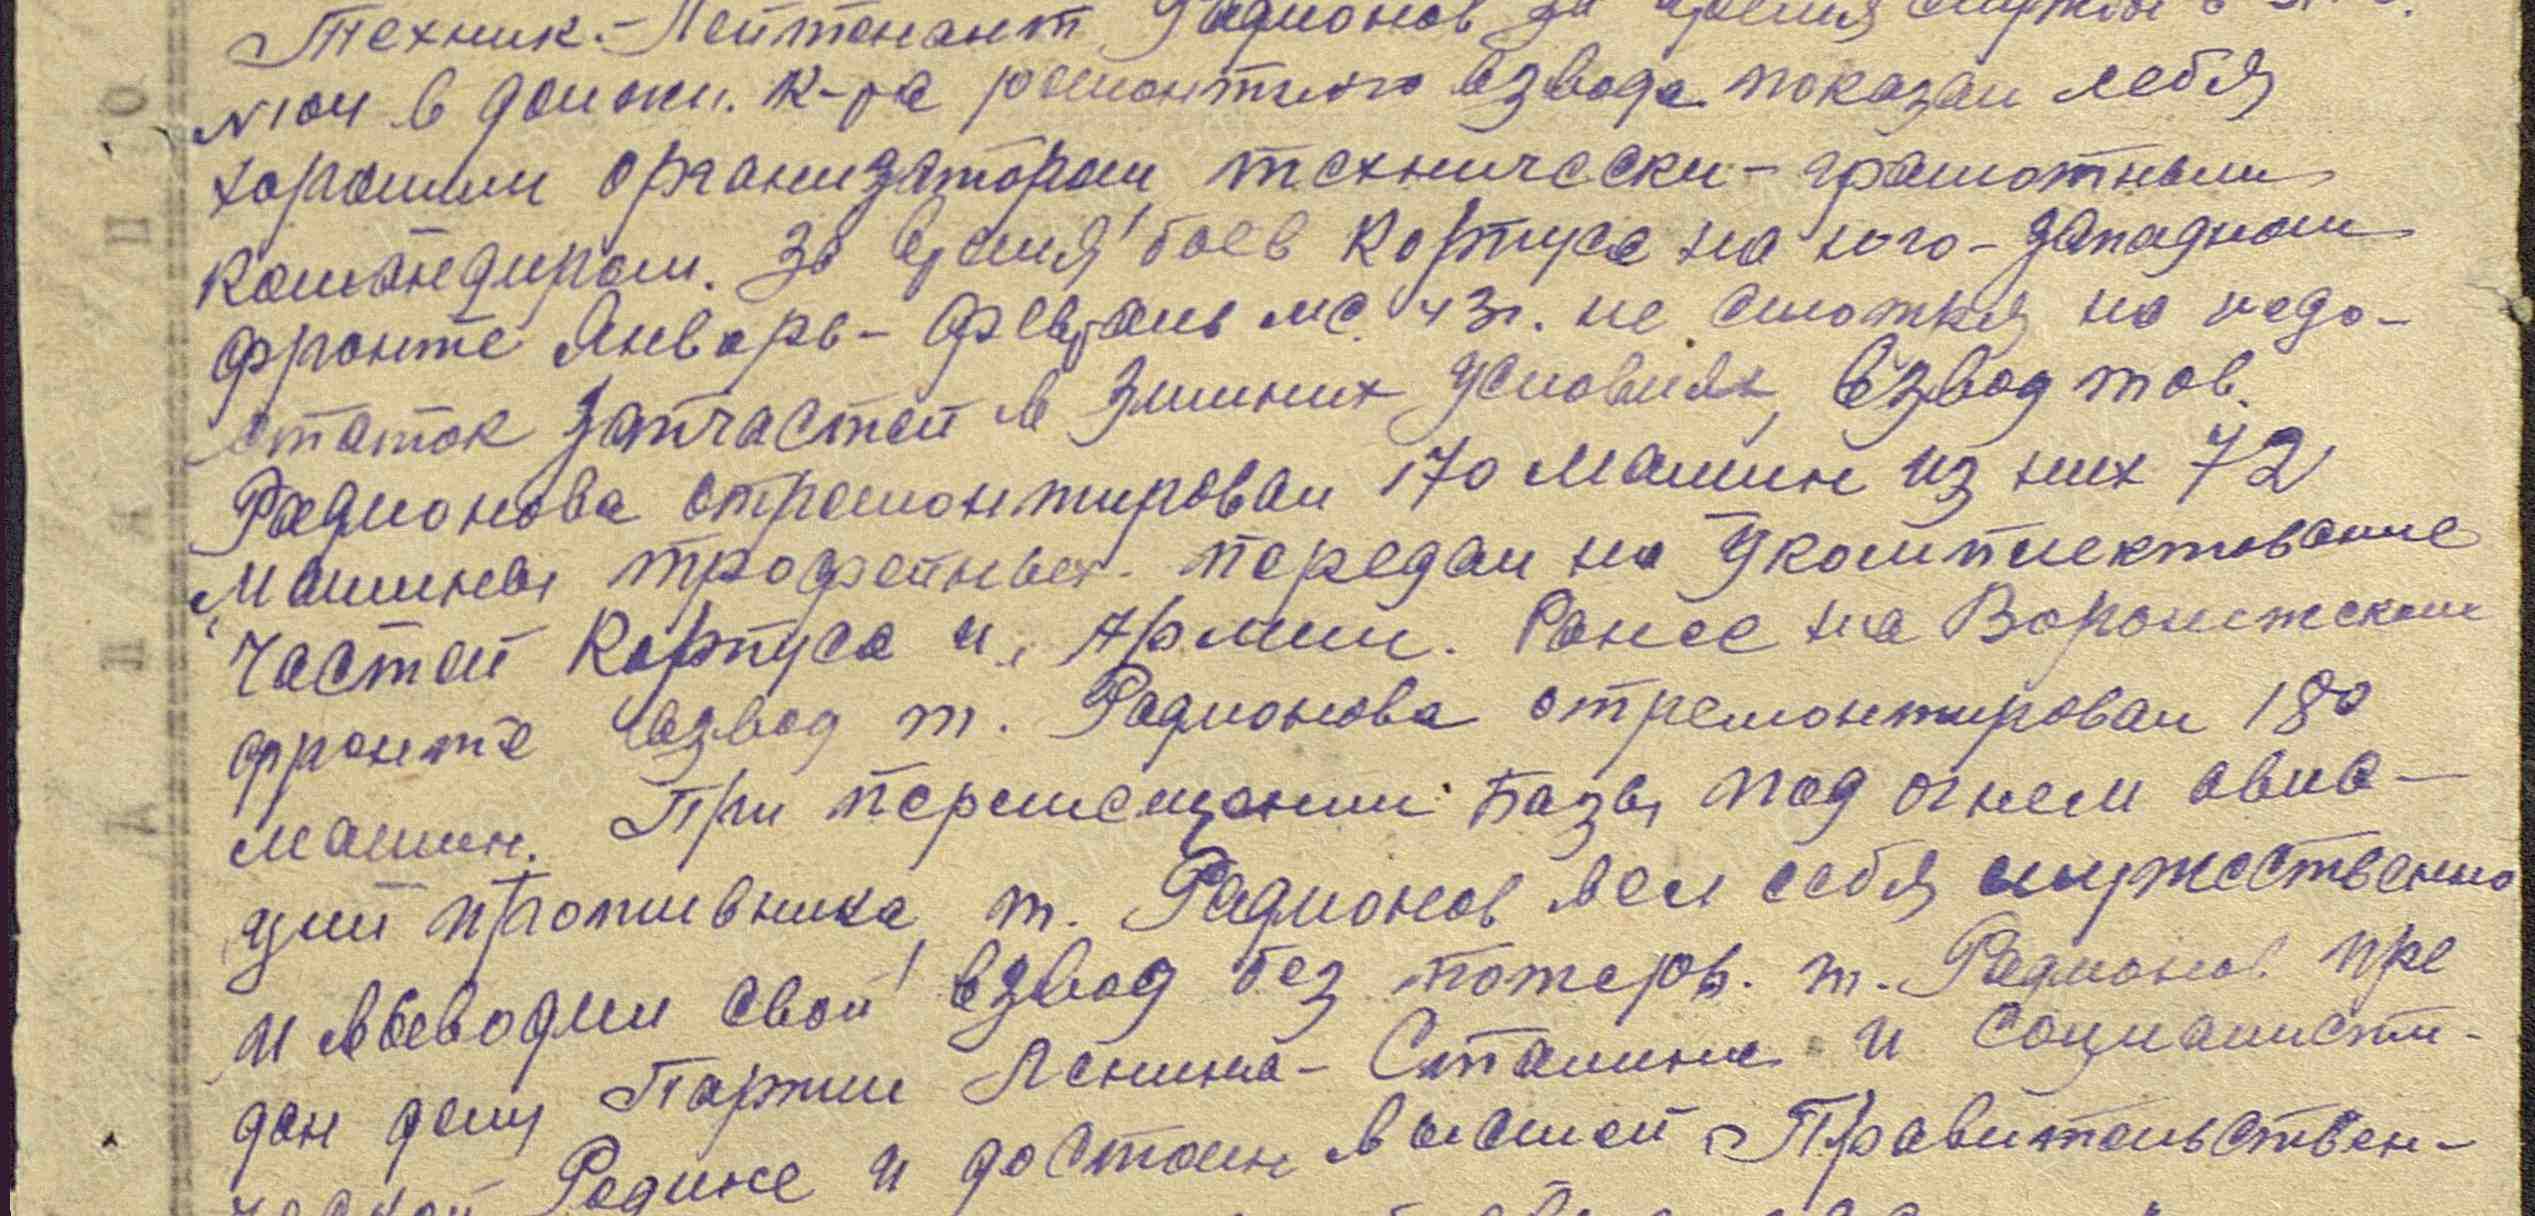 Техник.-Лейтенант Радионов за время службы в
№104 в должн. к-ра ремонтного взвода показал себя
хорошим организатором, технически-грамотным
командиром. За время боев Корпуса на юго-западном
фронте Январь-февраль мс. 43г. не смотня на недо-
статок запчастей в зимних условиях, взвод тов.
Радионова отремонтировал 170 машин из них 72
машины трофейных передал на укомплектование
частей Корпуса и Армии. Ранее на Воронежском
фронте взвод т. Радионова отремонтировал 180
машин. При перемещении базы под огнем авиа-
ции противника, т. Радионов вел себя мужественно
и выводил свой взвод без потерь. т. Радионов пре
дан делу Партии Ленина-Сталина и социалисти-
ческой Родине и достоин высшей Правительствен-